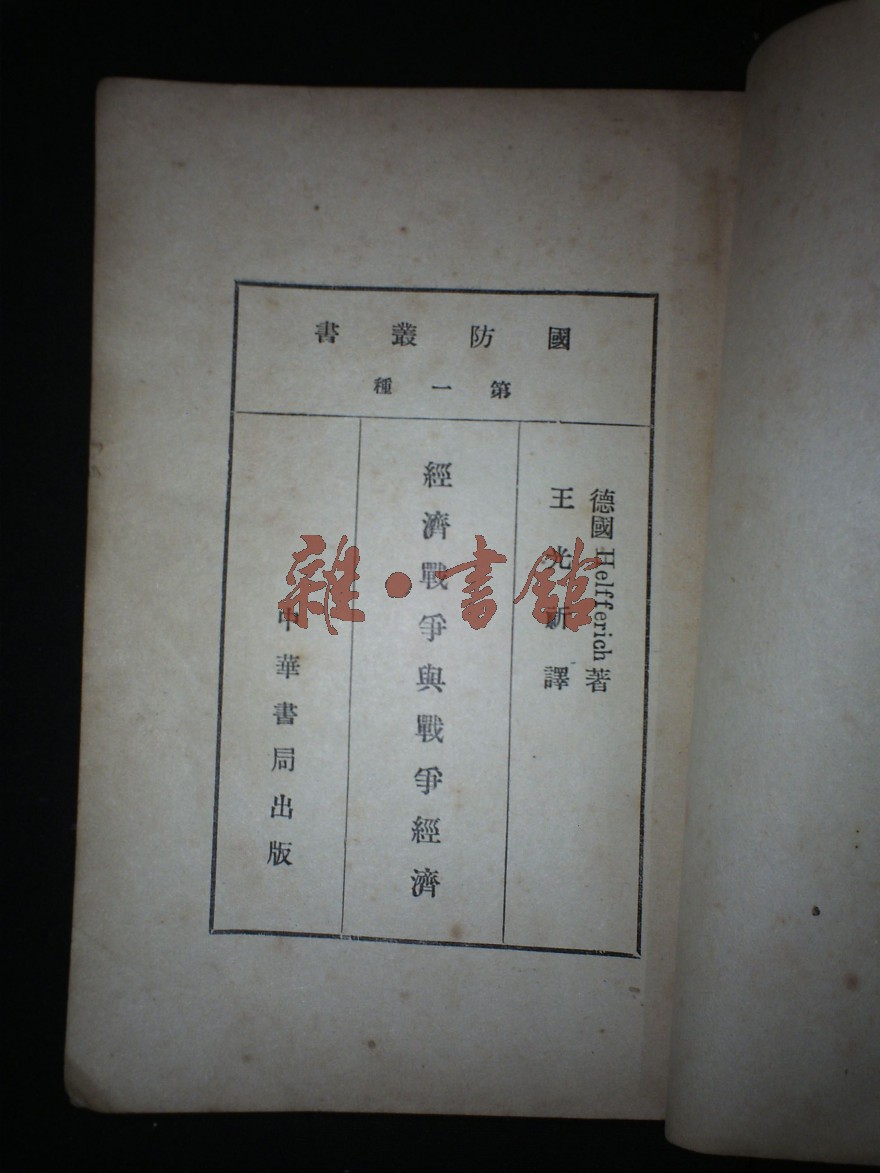 國防叢書
第一種
德國Helfferich著
王光祈譯
經濟戰爭與戰爭經濟
中華書局出版
雜·書館